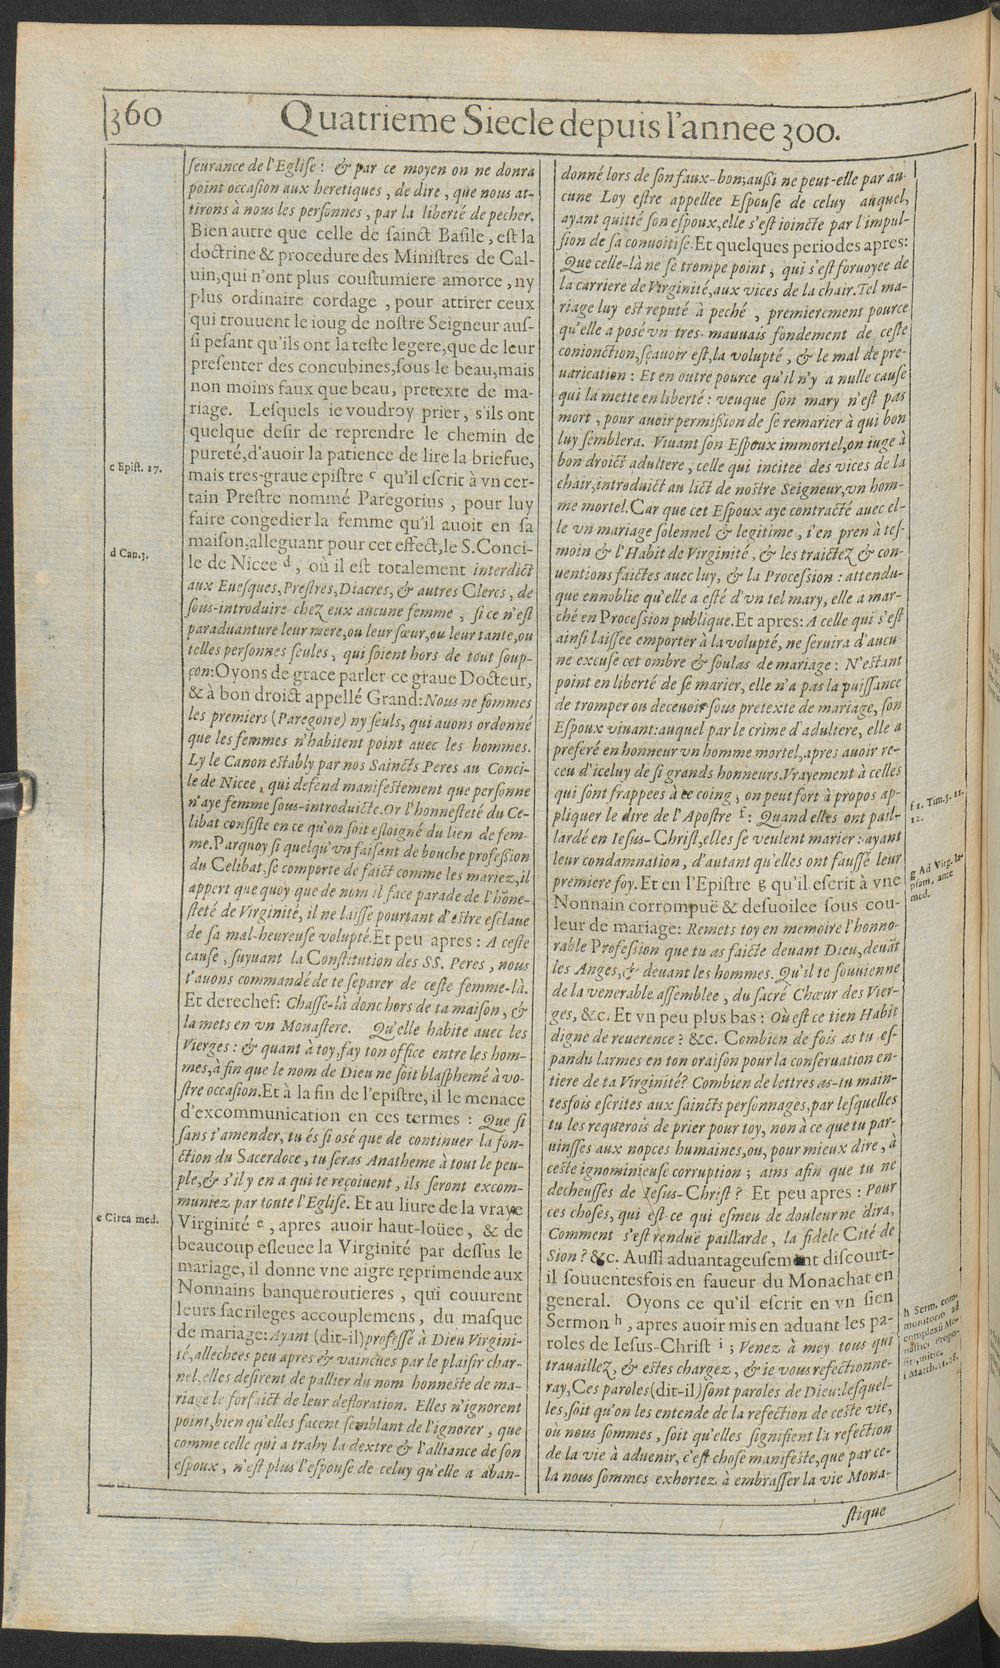 360
Quatrieme Siecle depuis l'annee 300.
seurance de l'Eglise: & par ce moyen on ne donra
point occasion aux heretiques, de dire, que nous at-
tirons à nous les personnes, par la liberté de pecher.
Bien autre que celle de sainct Basile, est la
doctrine & procedure des Ministres de Cal-
uin, qui n'ont plus coustumiere amorce, ny
plus ordinaire cordage, pour attirer ceux
qui trouuent le ioug de nostre Seigneur aus-
si pesant qu'ils ont la teste legere, que de leur
presenter des concubines, sous le beau, mais
non moins faux que beau, pretexte de ma-
riage. Lesquels ie voudroy prier, s'ils ont
quelque desir de reprendre le chemin de
pureté, d'auoir la patience de lire la briefue,
mais tres-graue epistre c qu'il escrit à vn cer-
tain Prestre nommé Paregorius, pour luy
faire congedier la femme qu'il auoit en sa
maison, alleguant pour cet effect, le S. Conci-
le de Nicee d, où il est totalement interdict
aux Euesques, Prestres, Diacres, & autres Clercs, de
sous-introduire chez eux aucune femme, si ce n'est
paraduanture leur mere, ou leur sœur, ou leur tante, ou
telles personnes seules, qui soient hors de tout soup-
çon: Oyons de grace parler ce graue Docteur,
& à bon droict appellé Grand: Nous ne sommes
les premiers (Paregoire) ny seuls, qui auons ordonné
que les femmes n'habitent point auec les hommes.
Ly le Canon estably par nos Saincts Peres au Conci-
le de Nicee, qui defend manifestement que personne
n'aye femme sous-introduicte. Or l'honnesteté du Ce-
libat consiste en ce qu'on soit esloigné du lien de fem-
me. Parquoy si quelqu'vn faisant de bouche profession
du Celibat, se comporte de faict comme les mariez, il
appert que quoy que de nom il face parade de l'hōne-
steté de Virginité, il ne laisse pourtant d'estre esclaue
de sa mal-heureuse volupté. Et peu apres: A ceste
cause, suyuant la Constitution des SS. Peres, nous
t'auons commandé de te separer de ceste femme-là.
Et derechef: Chasse-là donc hors de ta maison, &
la mets en vn Monastere. Qu'elle habite auec les
Vierges: & quant à toy, fay ton office entre les hom-
mes, à fin que le nom de Dieu ne soit blasphemé à vo-
stre occasion. Et à la fin de l'epistre, il le menace
d'excommunication en ces termes: Que si
sans t'amender, tu és si osé que de continuer la fon-
ction du Sacerdoce, tu seras Anatheme à tout le peu-
ple, & s'il y en a qui te reçoiuent, ils seront excom-
muniez par toute l'Eglise. Et au liure de la vraye
Virginité e, apres auoir haut-loüee, & de
beaucoup esleuee la Virginité par dessus le
mariage, il donne vne aigre reprimende aux
Nonnains banqueroutieres, qui couurent
leurs sacrileges accouplemens, du masque
de mariage: Ayant (dit-il) professé à Dieu Virgini-
té, allechees peu apres & vaincues par le plaisir char-
nel, elles desirent de pallier du nom honneste de ma-
riage le forfaict de leur defloration. Elles n'ignorent
point, bien qu'elles facent semblant de l'ignorer, que
comme celle qui a trahy la dextre & l'alliance de son
espoux, n'est plus l'espouse de celuy qu'elle a aban-
c Epist. 17.
d Can. 3.
e Circa med.
donné lors de son faux-bon; aussi ne peut-elle par au-
cune Loy estre appellee Espouse de celuy auquel,
ayant quitté son espoux, elle s'est ioincte par l'impul-
sion de sa conuoitise. Et quelques periodes apres:
Que celle-là ne se trompe point, qui s'est foruoyee de
la carriere de Virginité, aux vices de la chair. Tel ma-
riage luy est reputé à peché, premierement pource
qu'elle a posé vn tres-mauuais fondement de ceste
conionction, sçauoir est, la volupté, & le mal de pre-
uarication: Et en outre pource qu'il n'y a nulle cause
qui la mette en liberté: veuque son mary n'est pas
mort, pour auoir permission de se remarier à qui bon
luy semblera. Viuant son Espoux immortel, on iuge à
bon droict adultere, celle qui incitee des vices de la
chair, introduict au lict de nostre Seigneur, vn hom-
me mortel. Car que cet Espoux aye contracté auec el-
le vn mariage solennel & legitime, i'en pren à tes-
moin & l'Habit de Virginité, & les traictez & con-
uentions faictes auec luy, & la Procession: attendu-
que ennoblie qu'elle a esté d'vn tel mary, elle a mar-
ché en Procession publique. Et apres: A celle qui s'est
ainsi laissee emporter à la volupté, ne seruira d'aucu-
ne excuse cet ombre & soulas de mariage: N'estant
point en liberté de se marier, elle n'a pas la puissance
de tromper ou deceuoir sous pretexte de mariage, son
Espoux viuant: auquel par le crime d'adultere, elle a
preferé en honneur vn homme mortel, apres auoir re-
ceu d'iceluy de si grands honneurs. Vrayement à celles
qui sont frappees à ce coing, on peut fort à propos ap-
pliquer le dire de l'Apostre f: Quand elles ont pail-
lardé en Iesus-Christ, elles se veulent marier: ayant
leur condamnation, d'autant qu'elles ont faussé leur
premiere foy. Et en l'Epistre g qu'il escrit à vne
Nonnain corrompuë & desuoilee sous cou-
leur de mariage: Remets toy en memoire l'honno-
rable Profession que tu as faicte deuant Dieu, deuāt
les Anges, & deuant les hommes. Qu'il te souuienne
de la venerable assemblee, du sacré Chœur des Vier-
ges, &c. Et vn peu plus bas: Où est ce tien Habit
digne de reuerence? &c. Combien de fois as tu es-
pandu larmes en ton oraison pour la conseruation en-
tiere de ta Virginité? Combien de lettres as-tu main-
tesfois escrites aux saincts personnages, par lesquelles
tu les requerois de prier pour toy, non à ce que tu par-
uinsses aux nopces humaines, ou, pour mieux dire, à
ceste ignominieuse corruption; ains afin que tu ne
decheusses de Iesus-Christ? Et peu apres: Pour
ces choses, qui est-ce qui esmeu de douleur ne dira,
Comment s'est renduë paillarde, la fidele Cité de
Sion? &c. Aussi aduantageusement discourt-
il souuentesfois en faueur du Monachat en
general. Oyons ce qu'il escrit en vn sien
Sermon h, apres auoir mis en aduant les pa-
roles de Iesus-Christ i; Venez à moy tous qui
trauaillez, & estes chargez, & ie vous refectionne-
ray, Ces paroles (dit-il) sont paroles de Dieu: lesquel-
les, soit qu'on les entende de la refection de ceste vie,
où nous sommes, soit qu'elles signifient la refection
de la vie à aduenir, c'est chose manifeste, que par ce-
la nous sommes exhortez à embrasser la vie Mona-
f 1. Tim. 5. 11.
12.
g Ad Virg. la-
psam, ante
med.
h Serm. com-
monitorio ad
complexū Mo-
nasticę Propo-
siti, initio.
i Matth. 11. 28.
stique